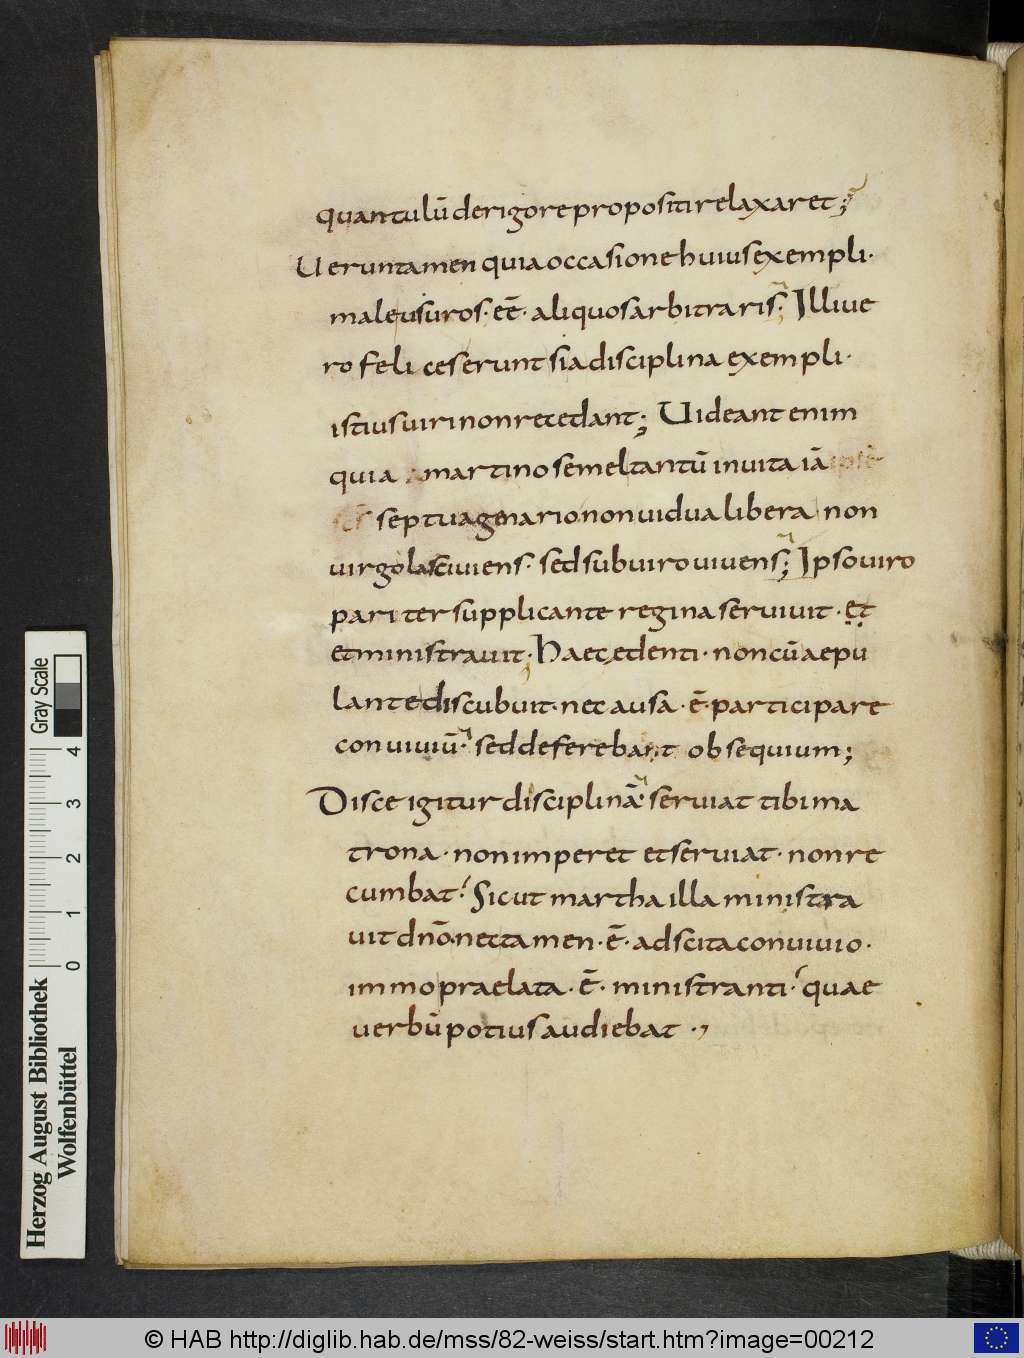 quantulū de rigore propositi relaxaret;
Ueruntamen quia occasione huius exempli·
male usuros· eē· aliquos arbitraris; Illi ue
ro felices erunt si a disciplina exempli·
istius uiri non recedant; Uideant enim
quia martino semel tantū in uita iā
septuagenario non uidua libera non
uirgo lasciuiens· sed sub uiro uiuens; Ipso uiro
pariter supplicante regina seruiuit· et
et ministrauit; Haec edenti· non cū aepu
lante discubuit· nec ausa· ē· participare
conuiuiū· sed deferebant obsequium;
Disce igitur disciplinā· seruiat tibi ma
trona· non imperet et seruiat· non re
cumbat· Sicut martha illa ministra
uit dn̄o· nec tamen· ē· adscita conuiuio·
immo praelata· ē· ministranti· quae
uerbū potius audiebat·,
Gray Scale
4
3
2
1
0
Herzog August Bibliothek
Wolfenbüttel
© HAB http://diglib.hab.de/mss/82-weiss/start.htm?image=00212